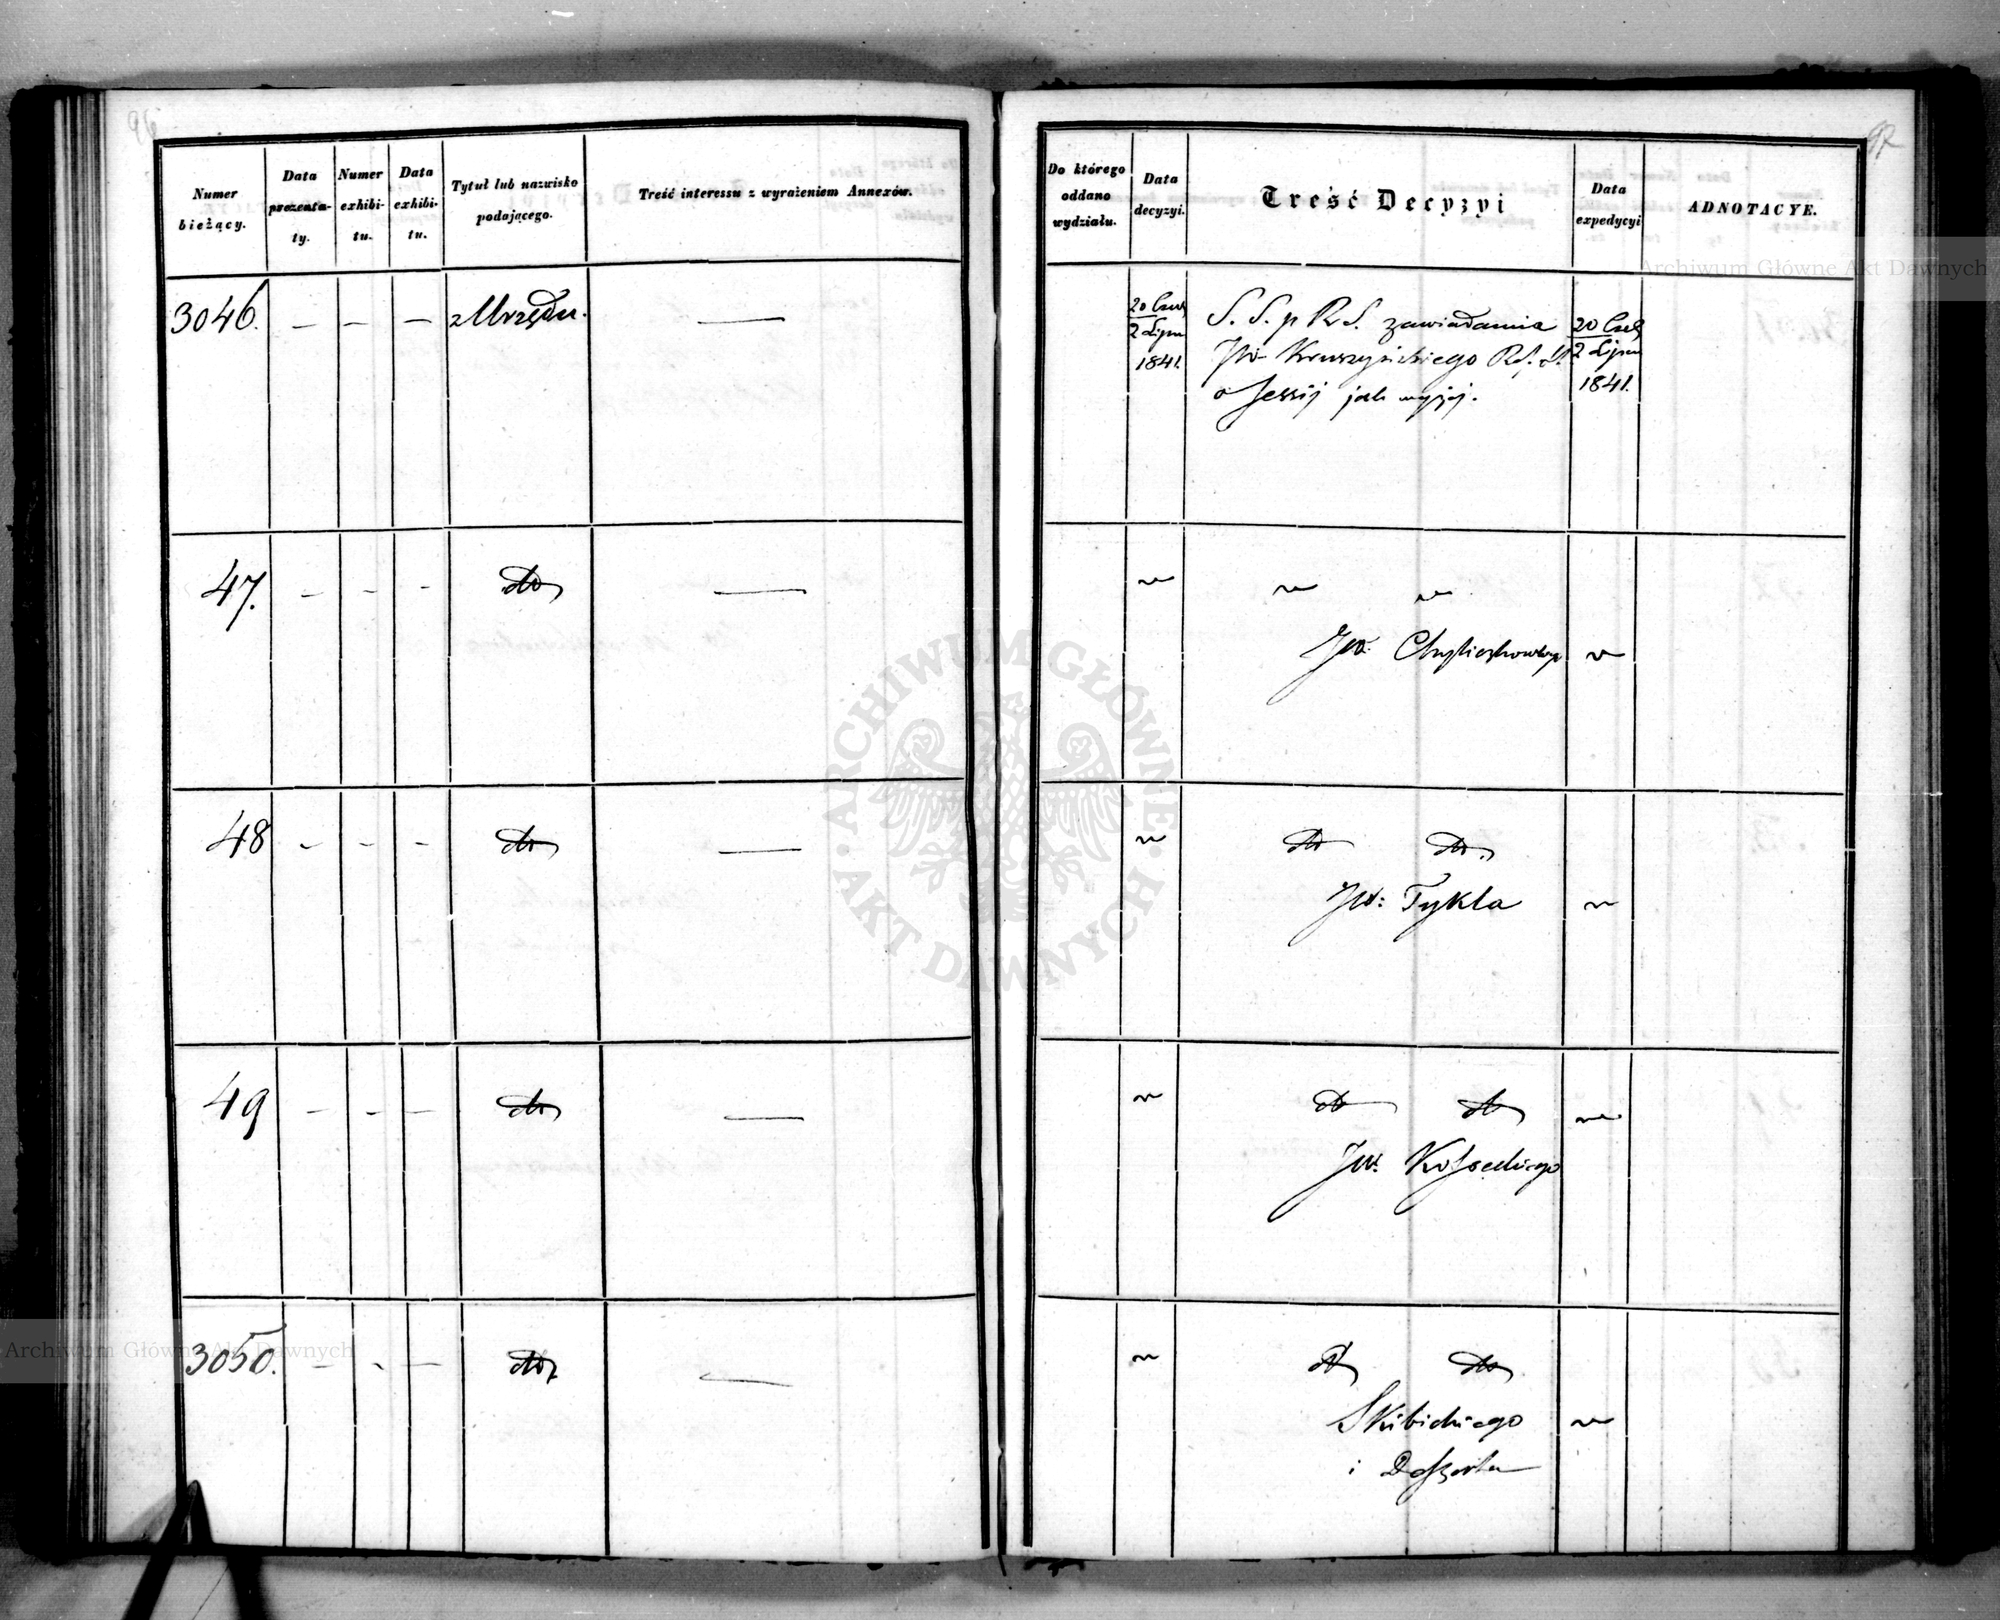 96
Numer
bieżący.
Data
prezenta-
ty.
Numer
exhibi-
tu.
Data
exhibi-
tu.
Tytuł lub nazwisko
podającego.
Treść interessu z wyrażeniem Annexów.
3046. — — — z Urzędu. —
47. — — — dto —
48 — — — dto —
49 — — — dto —
3050. — — — dto —
97
Do którego
oddano
wydziału.
Data
decyzyi.
Treść Decyzyi
Data
expedycyi
ADNOTACYE.
20 Czer
2 Lipca
1841.
S. S. p R. S. zawiadamia
JW Kruszyńskiego R. S.
o Sessij jak wyżej.
20 Cze
2 Lipca
1841.
JW: Chyliczkowskiego
dto dto.
JW: Tykla
dto dto
JW. Kosseckiego
dto dto
Skibickiego
i
Archiwum Główne Akt Dawnych
Archiwum Główne Akt Dawnych
ARCHIWUM GŁÓWNE
AKT DAWNYCH